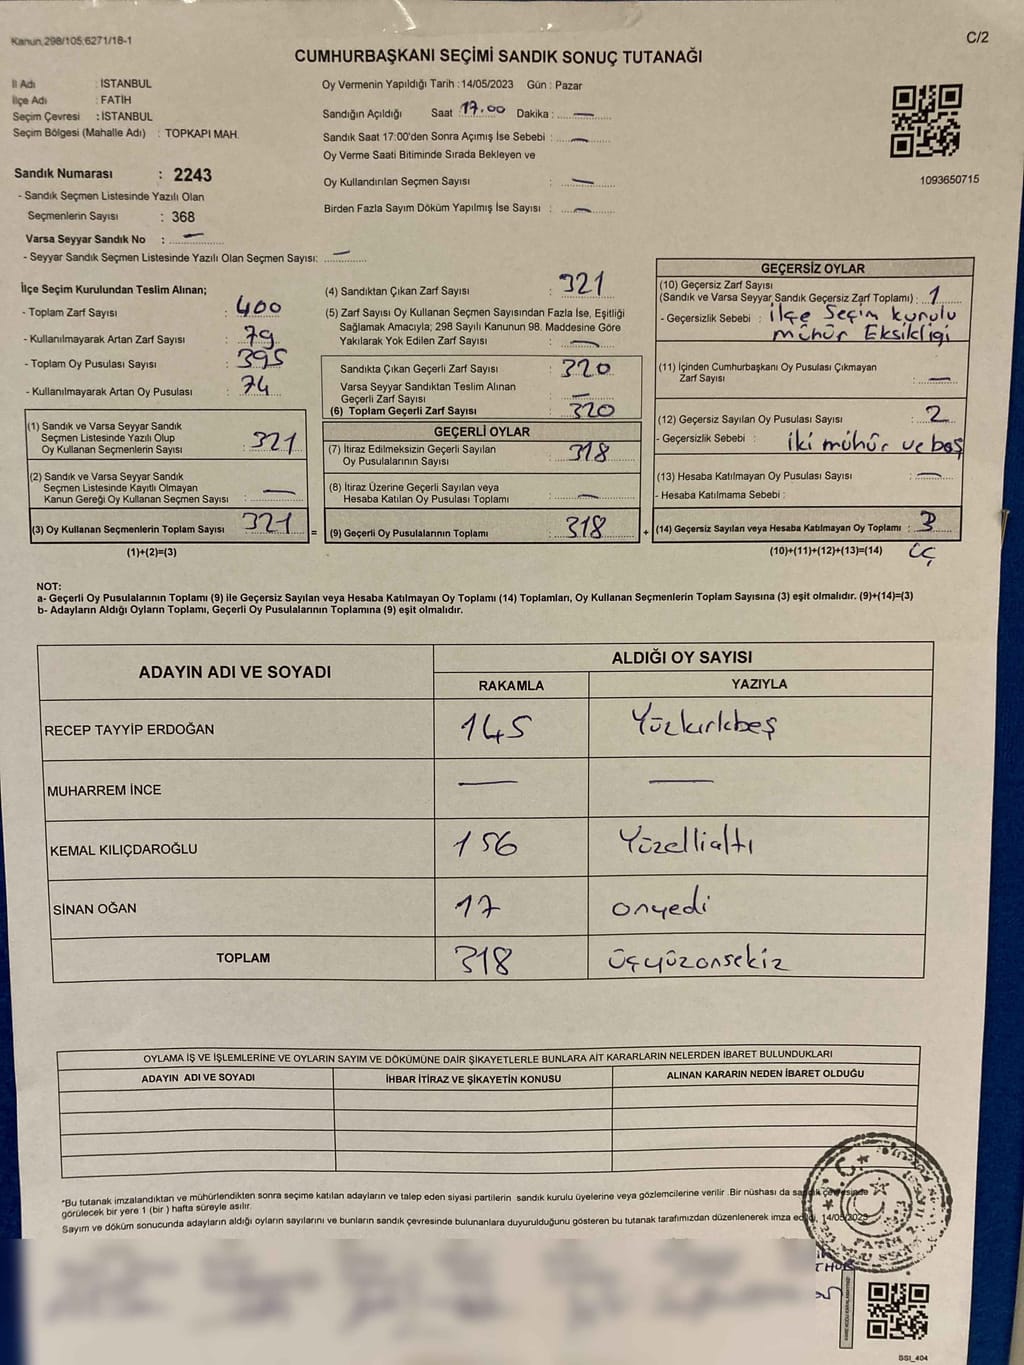 Kanun.298/105.6271/18-1
C/2
CUMHURBAŞKANI SEÇİMİ SANDIK SONUÇ TUTANAĞI
İl Adı : İSTANBUL
İlçe Adı : FATİH
Seçim Çevresi : İSTANBUL
Seçim Bölgesi (Mahalle Adı) : TOPKAPI MAH.
Oy Vermenin Yapıldığı Tarih : 14/05/2023 Gün : Pazar
Sandığın Açıldığı Saat 17.00 Dakika : —
Sandık Saat 17:00'den Sonra Açımış İse Sebebi : —
Oy Verme Saati Bitiminde Sırada Bekleyen ve
Oy Kullandırılan Seçmen Sayısı : —
Birden Fazla Sayım Döküm Yapılmış İse Sayısı : —
1093650715
Sandık Numarası : 2243
- Sandık Seçmen Listesinde Yazılı Olan
Seçmenlerin Sayısı : 368
Varsa Seyyar Sandık No : —
- Seyyar Sandık Seçmen Listesinde Yazılı Olan Seçmen Sayısı: —
İlçe Seçim Kurulundan Teslim Alınan;
- Toplam Zarf Sayısı : 400
- Kullanılmayarak Artan Zarf Sayısı : 79
- Toplam Oy Pusulası Sayısı : 395
- Kullanılmayarak Artan Oy Pusulası : 74
(1) Sandık ve Varsa Seyyar Sandık
Seçmen Listesinde Yazılı Olup
Oy Kullanan Seçmenlerin Sayısı : 321
(2) Sandık ve Varsa Seyyar Sandık
Seçmen Listesinde Kayıtlı Olmayan
Kanun Gereği Oy Kullanan Seçmen Sayısı : —
(3) Oy Kullanan Seçmenlerin Toplam Sayısı : 321 =
(1)+(2)=(3)
(4) Sandıktan Çıkan Zarf Sayısı : 321
(5) Zarf Sayısı Oy Kullanan Seçmen Sayısından Fazla İse, Eşitliği
Sağlamak Amacıyla; 298 Sayılı Kanunun 98. Maddesine Göre
Yakılarak Yok Edilen Zarf Sayısı : —
Sandıkta Çıkan Geçerli Zarf Sayısı : 320
Varsa Seyyar Sandıktan Teslim Alınan
Geçerli Zarf Sayısı : —
(6) Toplam Geçerli Zarf Sayısı : 320
GEÇERLİ OYLAR
(7) İtiraz Edilmeksizin Geçerli Sayılan
Oy Pusulalarının Sayısı : 318
(8) İtiraz Üzerine Geçerli Sayılan veya
Hesaba Katılan Oy Pusulası Toplamı : —
(9) Geçerli Oy Pusulalarının Toplamı : 318 +
GEÇERSİZ OYLAR
(10) Geçersiz Zarf Sayısı
(Sandık ve Varsa Seyyar Sandık Geçersiz Zarf Toplamı) : 1
- Geçersizlik Sebebi : ilçe Seçim kurulu
mühür Eksikliği
(11) İçinden Cumhurbaşkanı Oy Pusulası Çıkmayan
Zarf Sayısı : —
(12) Geçersiz Sayılan Oy Pusulası Sayısı : 2
- Geçersizlik Sebebi : iki mühür ve boş
(13) Hesaba Katılmayan Oy Pusulası Sayısı : —
- Hesaba Katılmama Sebebi :
(14) Geçersiz Sayılan veya Hesaba Katılmayan Oy Toplamı : 3
(10)+(11)+(12)+(13)=(14)
NOT:
a- Geçerli Oy Pusulalarının Toplamı (9) ile Geçersiz Sayılan veya Hesaba Katılmayan Oy Toplamı (14) Toplamları, Oy Kullanan Seçmenlerin Toplam Sayısına (3) eşit olmalıdır. (9)+(14)=(3)
b- Adayların Aldığı Oyların Toplamı, Geçerli Oy Pusulalarının Toplamına (9) eşit olmalıdır.
ADAYIN ADI VE SOYADI
ALDIĞI OY SAYISI
RAKAMLA YAZIYLA
RECEP TAYYİP ERDOĞAN 145 Yüzkırkbeş
MUHARREM İNCE — —
KEMAL KILIÇDAROĞLU 156 Yüzellialtı
SİNAN OĞAN 17 onyedi
TOPLAM 318 üçyüzonsekiz
OYLAMA İŞ VE İŞLEMLERİNE VE OYLARIN SAYIM VE DÖKÜMÜNE DAİR ŞİKAYETLERLE BUNLARA AİT KARARLARIN NELERDEN İBARET BULUNDUKLARI
ADAYIN ADI VE SOYADI İHBAR İTİRAZ VE ŞİKAYETİN KONUSU ALINAN KARARIN NEDEN İBARET OLDUĞU
*Bu tutanak imzalandıktan ve mühürlendikten sonra seçime katılan adayların ve talep eden siyasi partilerin sandık kurulu üyelerine veya gözlemcilerine verilir .Bir nüshası da sandık çevresinde
görülecek bir yere 1 (bir ) hafta süreyle asılır.
Sayım ve döküm sonucunda adayların aldığı oyların sayılarını ve bunların sandık çevresinde bulunanlara duyurulduğunu gösteren bu tutanak tarafımızdan düzenlenerek imza edildi. 14/05/2023
T.C.
SSI_404